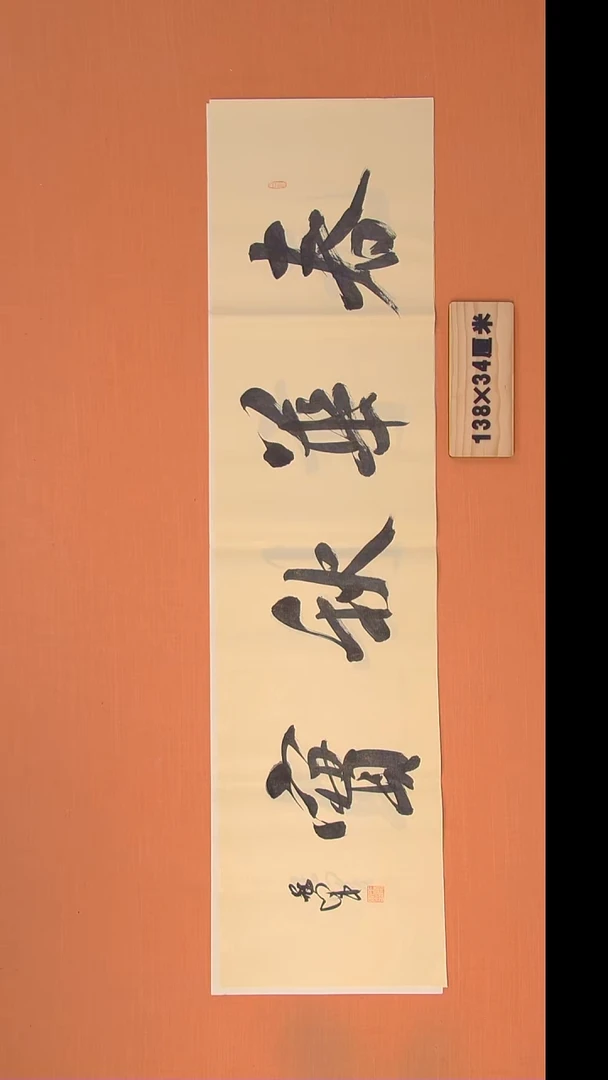 春華秋實
138×34厘米